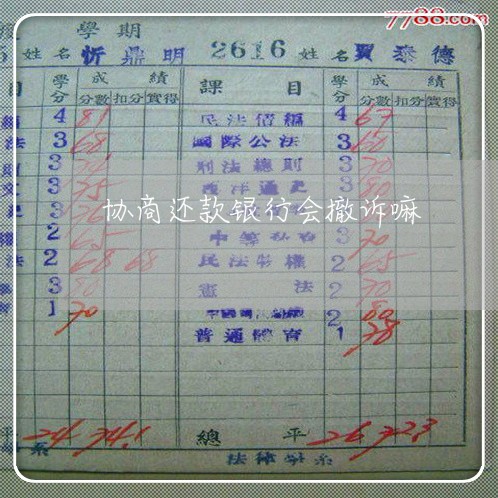 7788.com
學期
姓名 忻鼎明 2616 姓名 賈泰德
目 學分 成績 課目 學分 成績
分數 扣分 實得 分數 扣分 實得
4 81 民法債編 4 67
法 3 68 國際公法 3 60
3 刑法總則 3 70
3 75 西洋通史 3 80
协商还款银行会撤诉嘛
2 65 3 70
法 2 68 68 民法物權 2 65
3 80 憲法 2 70
1 70 2 80
普通體育 1 78
平 24 74.1 總平 26 72.3
系 法律學系